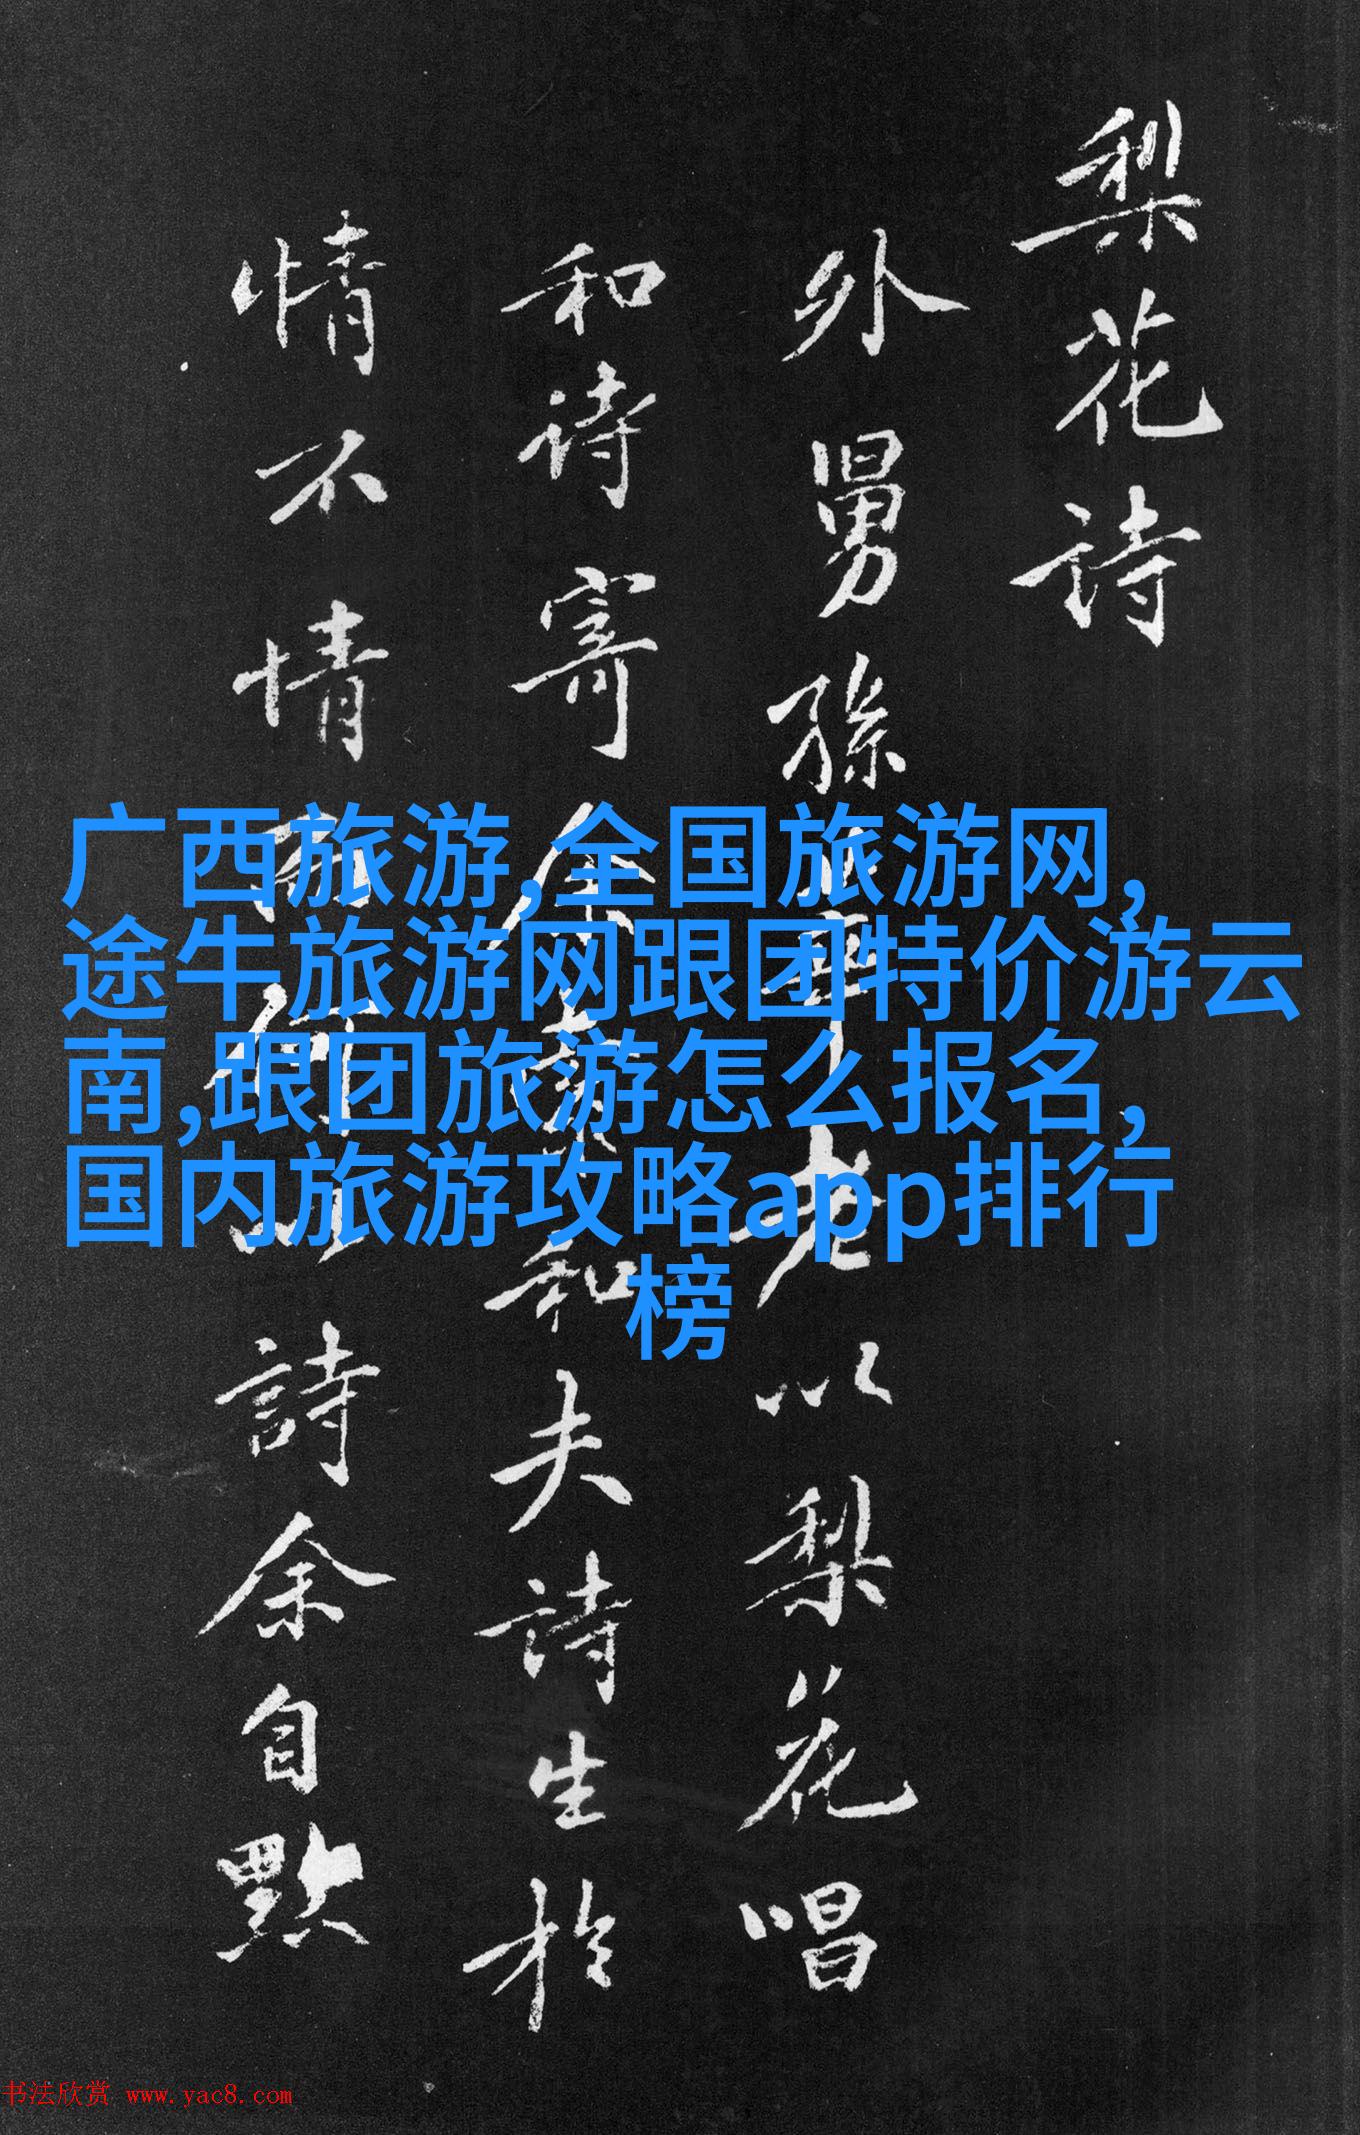 梨花詩
外舅孫莘老以梨花唱
和詩寄余和夫詩生於
情不情而何以詩余自默
广西旅游,全国旅游网,
途牛旅游网跟团特价游云
南,跟团旅游怎么报名,
国内旅游攻略app排行
榜
书法欣赏 www.yac8.com